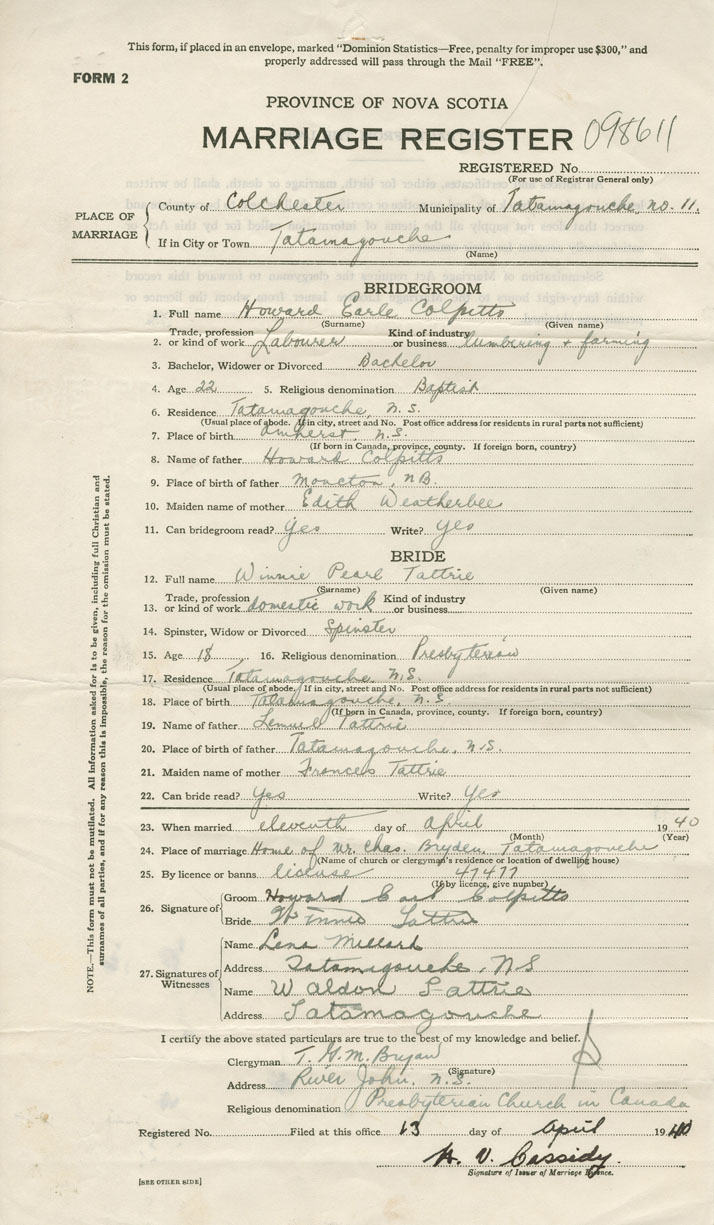 This form, if placed in an envelope, marked "Dominion Statistics—Free, penalty for improper use $300," and
properly addressed will pass through the Mail "FREE".
FORM 2
PROVINCE OF NOVA SCOTIA
MARRIAGE REGISTER 098611
REGISTERED No.
(For use of Registrar General only)
PLACE OF MARRIAGE
County of Colchester Municipality of Tatamagouche, no. 11.
If in City or Town Tatamagouche
(Name)
BRIDEGROOM
1. Full name Howard Earle Colpitts
(Surname) (Given name)
2. Trade, profession or kind of work Labourer Kind of industry or business lumbering + farming
3. Bachelor, Widower or Divorced Bachelor
4. Age 22 5. Religious denomination Baptist
6. Residence Tatamagouche, N.S.
(Usual place of abode. If in city, street and No. Post office address for residents in rural parts not sufficient)
7. Place of birth Amherst, N.S.
(If born in Canada, province, county. If foreign born, country)
8. Name of father Howard Colpitts
9. Place of birth of father Moncton, NB.
10. Maiden name of mother Edith Weatherbee
11. Can bridegroom read? yes Write? yes
BRIDE
12. Full name Winnie Pearl Tattrie
(Surname) (Given name)
13. Trade, profession or kind of work domestic work Kind of industry or business
14. Spinster, Widow or Divorced Spinster
15. Age 18 16. Religious denomination Presbyterian
17. Residence Tatamagouche, N.S.
(Usual place of abode. If in city, street and No. Post office address for residents in rural parts not sufficient)
18. Place of birth Tatamagouche, N.S.
(If born in Canada, province, county. If foreign born, country)
19. Name of father Lemuel Tattrie
20. Place of birth of father Tatamagouche, N.S.
21. Maiden name of mother Frances Tattrie
22. Can bride read? Yes Write? Yes
23. When married eleventh day of April 1940
(Month) (Year)
24. Place of marriage Home of Mr. Chas. Bryden, Tatamagouche
(Name of church or clergyman's residence or location of dwelling house)
25. By licence or banns license 47477
(If by licence, give number)
26. Signature of
Groom Howard Earl Colpitts
Bride Winnie Tattrie
27. Signatures of Witnesses
Name Lena Millard
Address Tatamagouche, NS
Name Waldon Tattrie
Address Tatamagouche
I certify the above stated particulars are true to the best of my knowledge and belief.
Clergyman T. G. M. Bryan
(Signature)
Address River John, N.S.
Religious denomination Presbyterian Church in Canada
Registered No. Filed at this office 13 day of April 1940
H. V. Cassidy.
Signature of Issuer of Marriage licence.
[SEE OTHER SIDE]
NOTE.—This form must not be mutilated. All information asked for is to be given, including full Christian and
surnames of all parties, and if for any reason this is impossible, the reason for the omission must be stated.